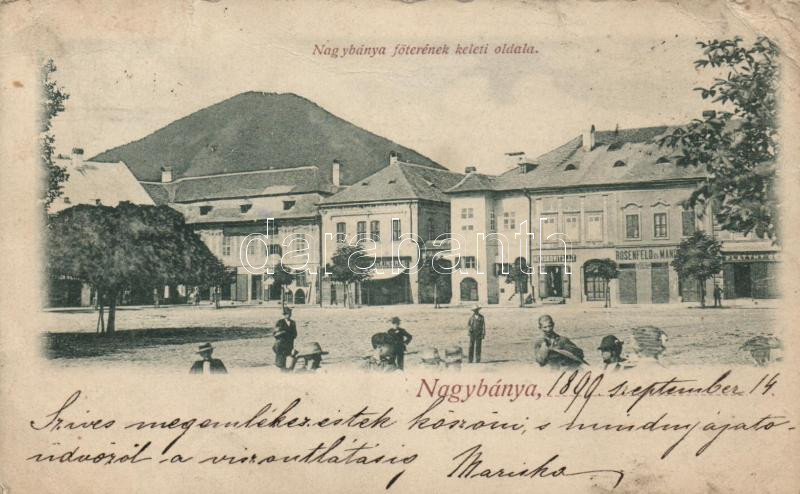 Nagybánya főterének keleti oldala.
ROSENFELD és
darabanth
Nagybánya, 1899 september 14.
Szives megemlékezéstek köszöni, s mindnyájato-
üdvözöl a viszontlátásig Mariska